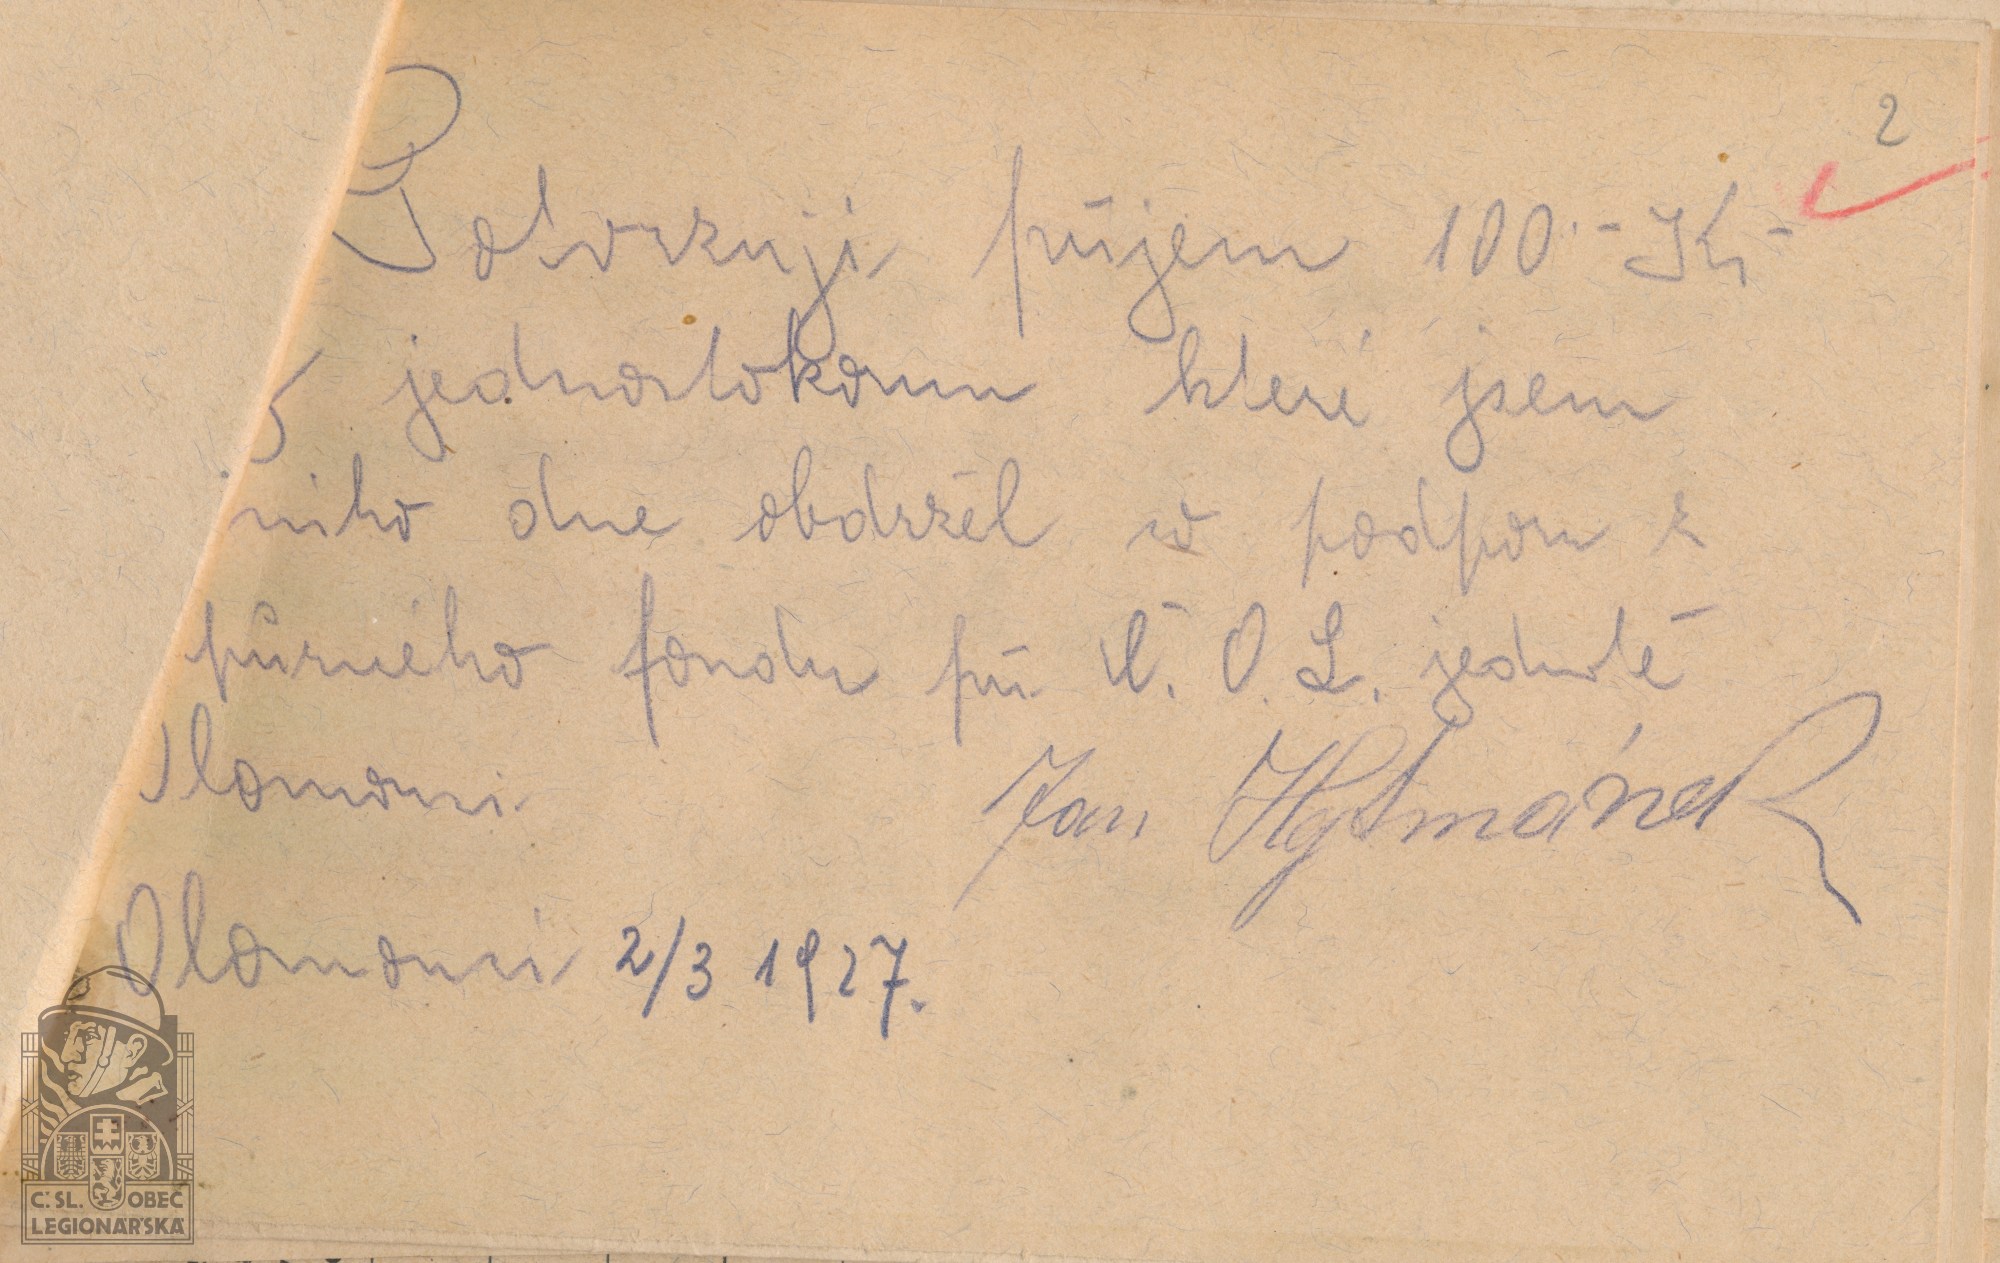 2
Potvrzuji příjem 100.- Kč
jednostokorun které jsem
niho dne obdržel v podporu z
půrného fondu při Č. O. L. jednotě
Olomouci
Jan
Olomouci 2/3 1927.
Č. SL. OBEC
LEGIONÁŘSKÁ